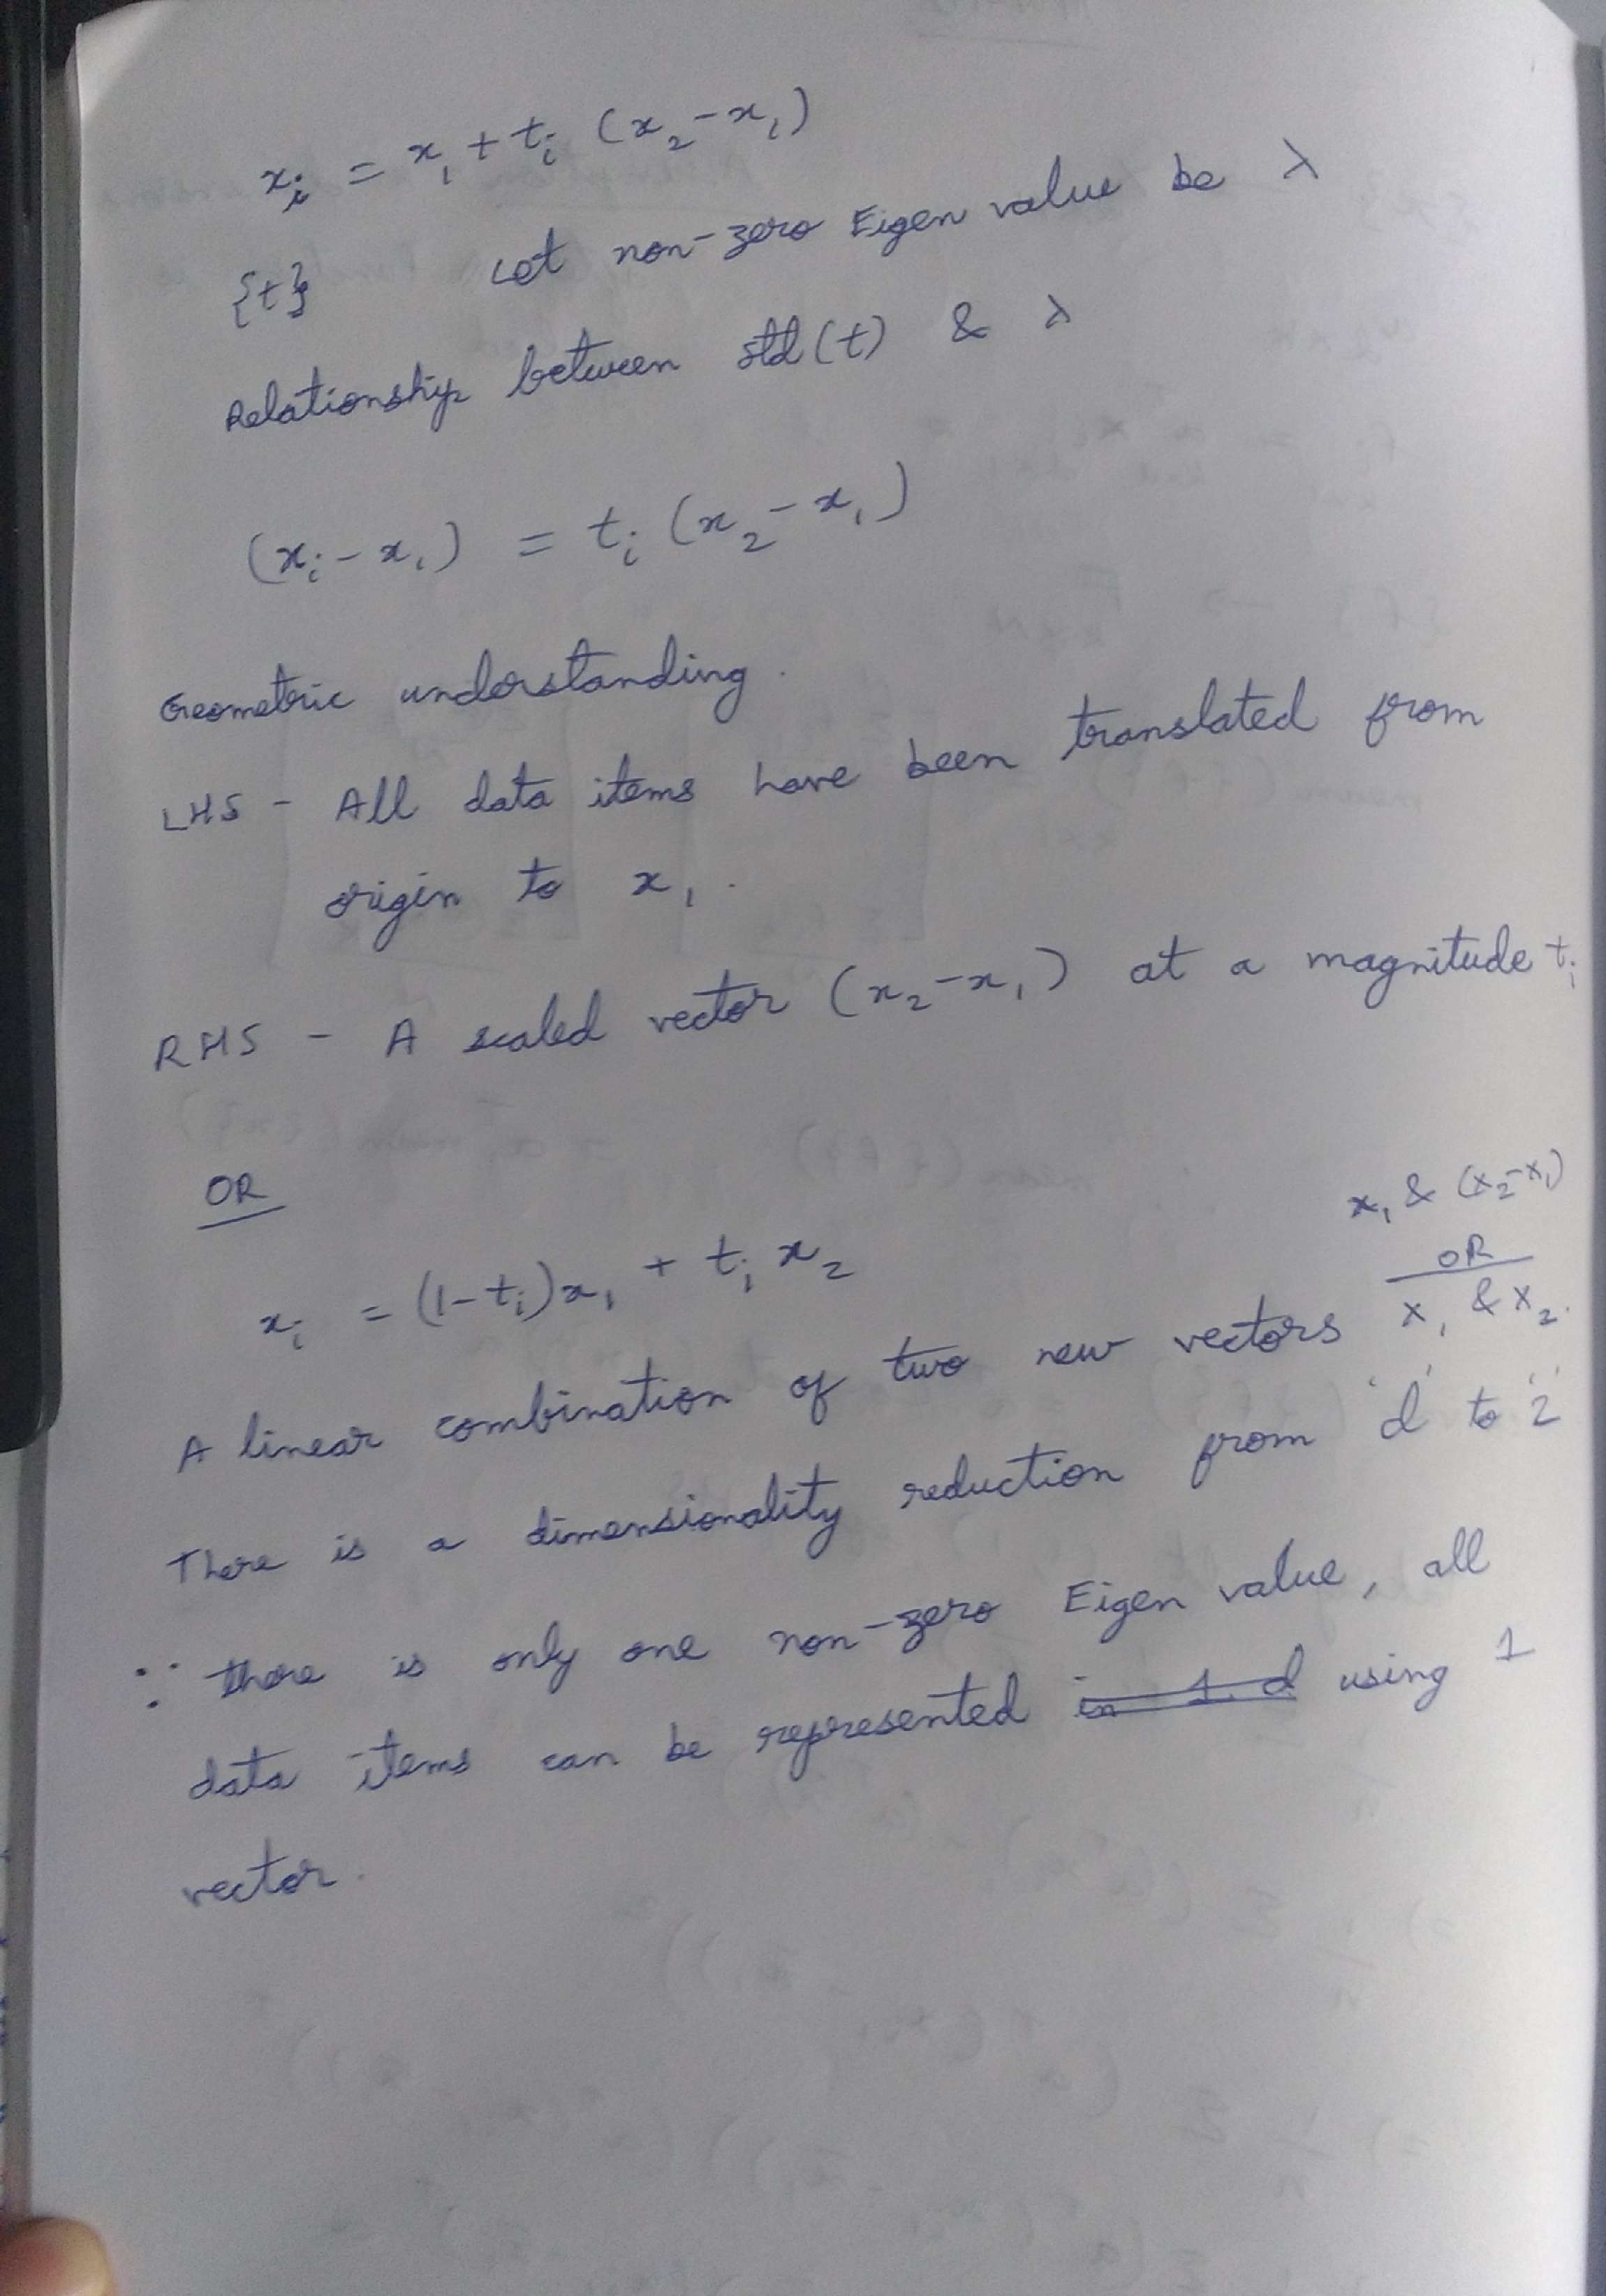 xᵢ = x₁ + tᵢ (x₂ - x₁)
{t} Let non-zero Eigen value be λ
Relationship between std(t) & λ
(xᵢ - x₁) = tᵢ (x₂ - x₁)
Geometric understanding.
LHS - All data items have been translated from
origin to x₁.
RHS - A scaled vector (x₂ - x₁) at a magnitude tᵢ
OR
xᵢ = (1-tᵢ)x₁ + tᵢ x₂
x₁ & (x₂-x₁)
OR
A linear combination of two new vectors x₁ & x₂.
There is a dimensionality reduction from 'd' to '2'
∵ there is only one non-zero Eigen value, all
data items can be represented in 1 d using 1
vector.